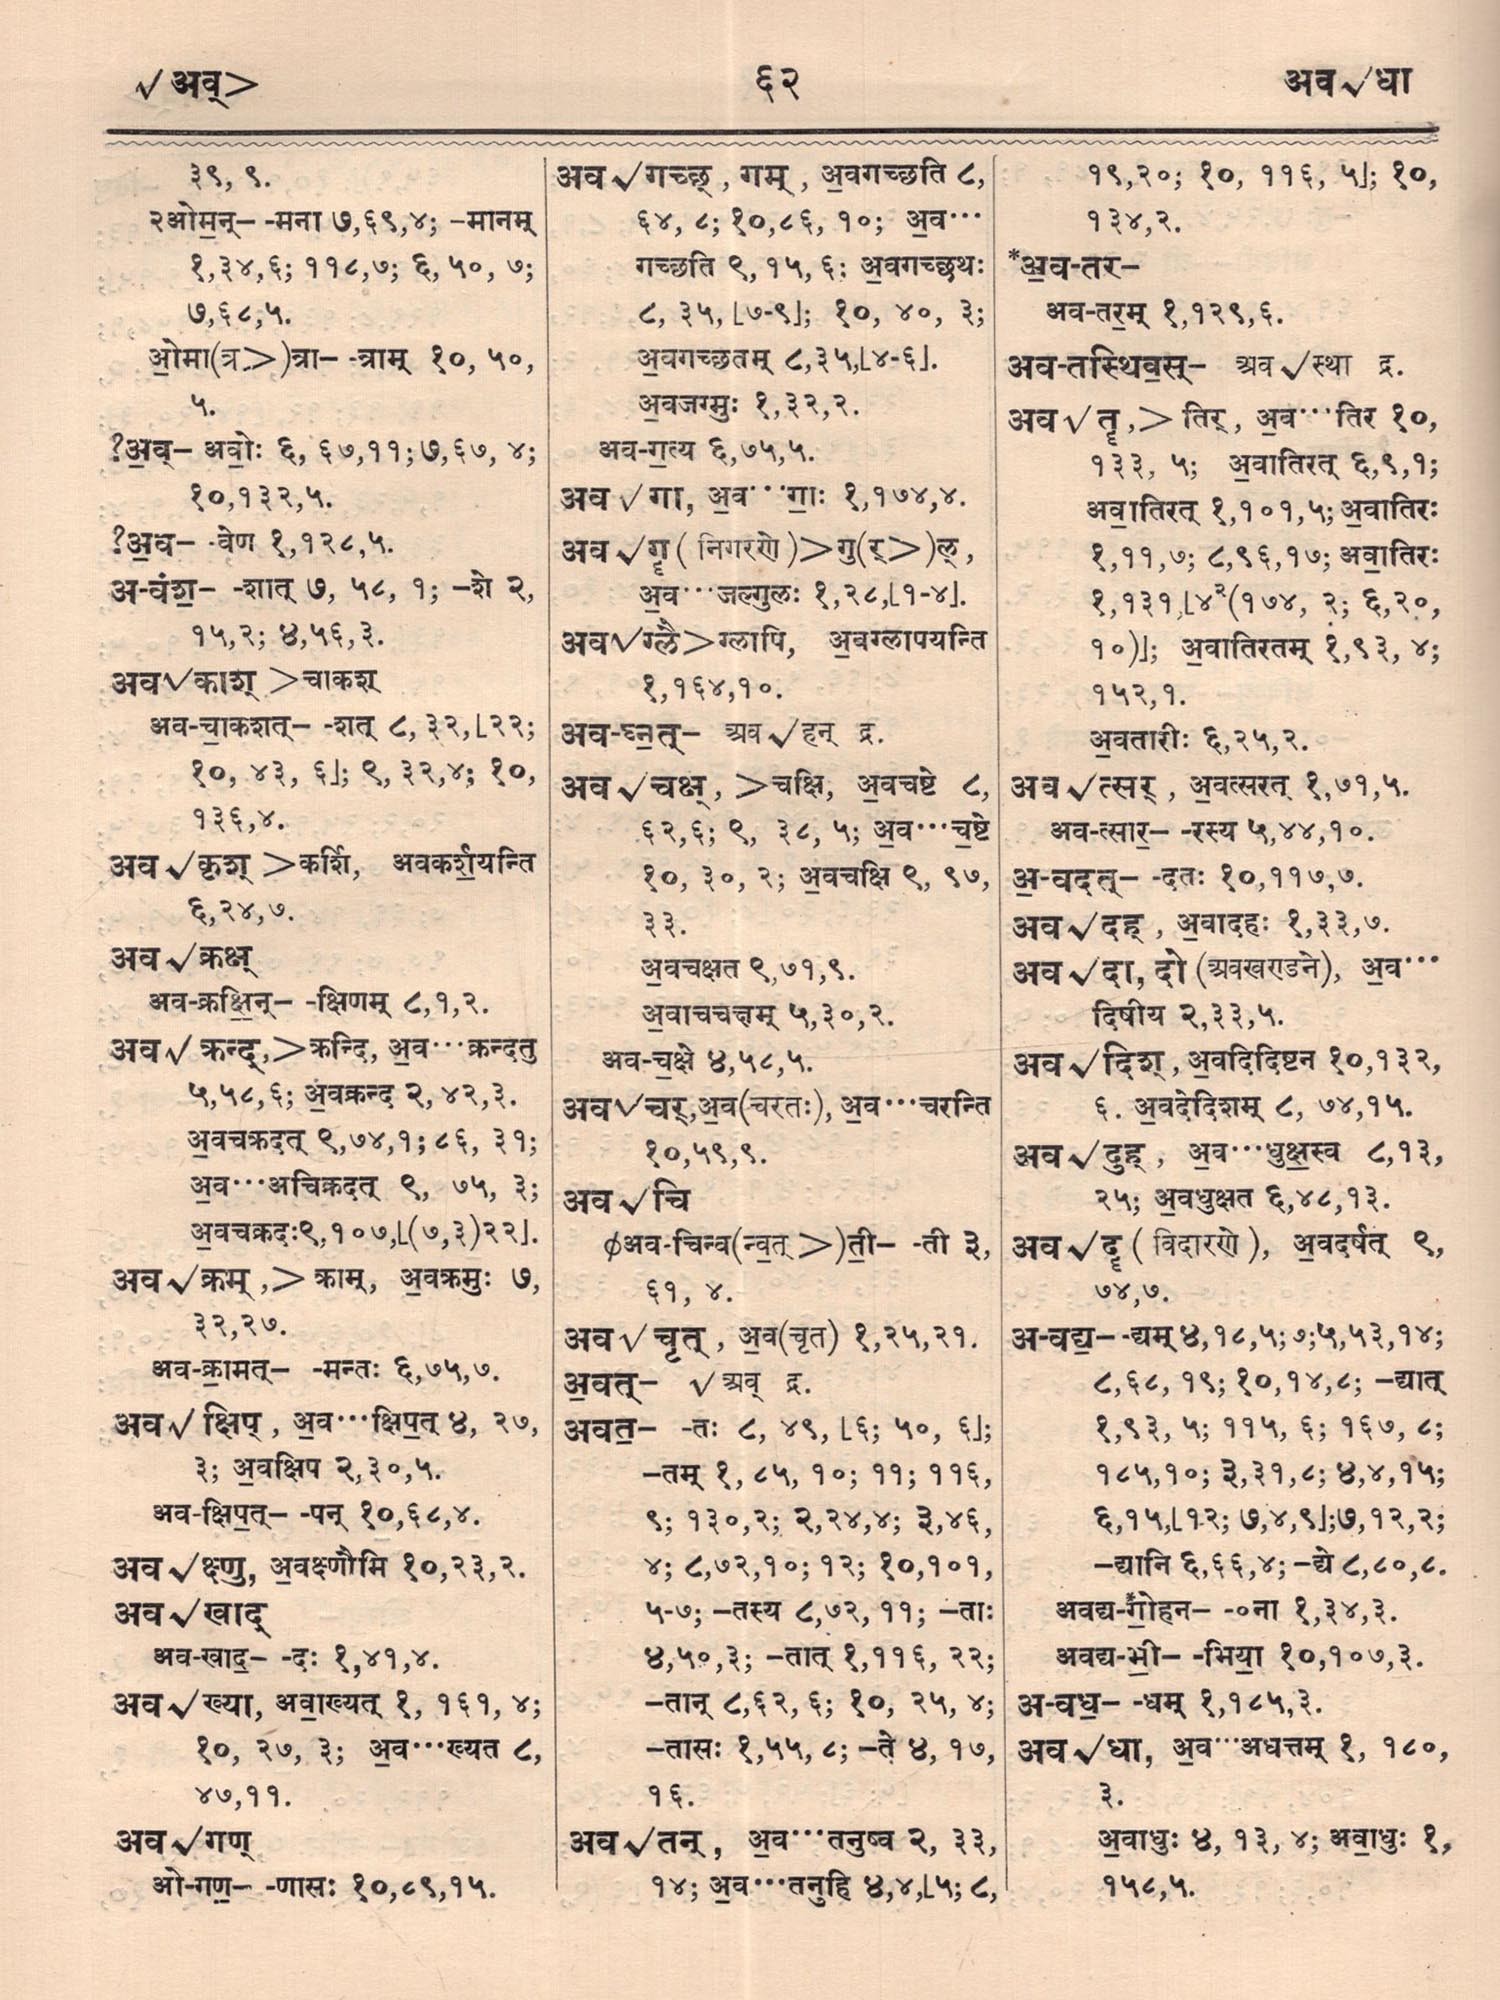 √अव्>
६२
अव√धा
३९, ९.
२ओम॒न्– -मना ७,६९,४; –मानम्
१,३४,६; ११८,७; ६, ५०, ७;
७,६८,५.
ओ॒मा(त्र>)त्रा– -त्राम् १०, ५०,
५.
?अ॒व्– अवो॒ः ६, ६७,११; ७,६७, ४;
१०,१३२,५.
?अ॒व– -वेण १,१२८,५.
अ-वंश॒– -शात् ७, ५८, १; –शे २,
१५,२; ४,५६,३.
अव√काश् >चाकश्
अव-चा॒कशत्– -शत् ८, ३२,⌊२२;
१०, ४३, ६⌋; ९, ३२,४; १०,
१३६,४.
अव√कृश् >कर्शि, अवकर्श॒यन्ति
६,२४,७.
अव√क्रक्ष्
अव-क्रक्षि॒न्– -क्षिणम् ८,१,२.
अव√क्रन्द्,>क्रन्दि, अ॒व···क्रन्दतु
५,५८,६; अ॒वक्रन्द २, ४२,३.
अ॒वचक्रदत् ९,७४,१; ८६, ३१;
अ॒व···अचिक्रदत् ९, ७५, ३;
अ॒वचक्रदः९,१०७,⌊(७,३)२२⌋.
अव√क्रम् ,> क्राम्, अ॒वक्रमुः ७,
३२,२७.
अव-क्रा॒मत्– -मन्तः ६,७५,७.
अव√क्षिप् , अ॒व···क्षिप॒त् ४, २७,
३; अ॒वक्षिप २,३०,५.
अव-क्षिप॒त्– -पन् १०,६८,४.
अव√क्ष्णु, अ॒वक्ष्णौमि १०,२३,२.
अव√खाद्
अव-खाद॒– -दः १,४१,४.
अव√ख्या, अवा॒ख्यत् १, १६१, ४;
१०, २७, ३; अ॒व···ख्यत ८,
४७,११.
अव√गण्
ओ-गण॒– -णासः १०,८९,१५.
अव√गच्छ् , गम् , अ॒वगच्छति ८,
६४, ८; १०,८६, १०; अ॒व···
गच्छति ९, १५, ६; अ॒वगच्छथः
८, ३५, ⌊७-९⌋; १०, ४०, ३;
अ॒वगच्छतम् ८,३५,⌊४-६⌋.
अ॒वजग्मुः १,३२,२.
अव-ग॒त्य ६,७५,५.
अव√गा, अ॒व···गा॒ः १,१७४,४.
अव√गॄ( निगरणे)>गु(र्>)ल् ,
अ॒व···जल्गुलः १,२८,⌊१-४⌋.
अव√ग्लै>ग्लापि, अ॒वग्लापयन्ति
१,१६४,१०.
अव-घ्न॒त्– अव√हन् द्र.
अव√चक्ष् , >चक्षि, अ॒वचष्टे ८,
६२,६; ९, ३८, ५; अ॒व···च॒ष्टे
१०, ३०, २; अ॒वचक्षि ९, ९७,
३३.
अ॒वचक्षत ९,७१,९.
अ॒वाचचक्षम् ५,३०,२.
अव-च॒क्षे ४,५८,५.
अव√चर्,अ॒व(चरतः), अ॒व···चरन्ति
१०,५९,९.
अव√चि
φअव-चिन्व(न्व॒त् >)ती॒– -ती ३,
६१, ४.
अव√चृत् , अ॒व(चृत) १,२५,२१.
अ॒वत्– √अव् द्र.
अवत॒– -तः ८, ४९, ⌊६; ५०, ६⌋;
–तम् १, ८५, १०; ११; ११६,
९; १३०,२; २,२४,४; ३,४६,
४; ८,७२,१०; १२; १०,१०१,
५-७; –तस्य ८,७२, ११; –ताः
४,५०,३; –तात् १,११६, २२;
–तान् ८,६२, ६; १०, २५, ४;
–तासः १,५५, ८; –ते ४, १७,
१६.
अव√तन् , अ॒व···तनुष्व २, ३३,
१४; अ॒व···तनुहि ४,४,⌊५; ८,
१९,२०; १०, ११६, ५⌋; १०,
१३४,२.
*अ॒व-तर–
अव-तर॒म् १,१२९,६.
अव-तस्थिव॒स्– अव√स्था द्र.
अव√तॄ,> तिर् , अ॒व···तिर १०,
१३३, ५; अ॒वातिरत् ६,९,१;
अवा॒तिरत् १,१०१,५; अ॒वातिरः
१,११,७; ८,९६,१७; अवा॒तिरः
१,१३१,⌊४²(१७४, २; ६,२०,
१०)⌋; अ॒वातिरतम् १,९३, ४;
१५२,१.
अ॒वतारीः ६,२५,२.
अव√त्सर् , अ॒वत्सरत् १,७१,५.
अव-त्सार॒– -रस्य ५,४४,१०.
अ॒-वदत्– -दतः १०,११७,७.
अव√दह् , अ॒वादहः १,३३,७.
अव√दा, दो (अवखण्डने), अ॒व···
दिषीय २,३३,५.
अव√दिश् , अ॒वदिदिष्टन १०,१३२,
६. अ॒वदेदिशम् ८, ७४,१५.
अव√दुह् , अ॒व···धुक्ष॒स्व ८,१३,
२५; अ॒वधुक्षत ६,४८,१३.
अव√दॄ( विदारणे), अ॒वदर्षत् ९,
७४,७.
अ-वद्य॒– -द्यम् ४,१८,५; ७;५,५३,१४;
८,६८, १९; १०,१४,८; –द्यात्
१,९३, ५; ११५, ६; १६७, ८;
१८५,१०; ३,३१,८; ४,४,१५;
६,१५,⌊१२; ७,४,९⌋;७,१२,२;
–द्यानि ६,६६,४; –द्ये ८,८०,८.
अवद्य-गो॒हन– -०ना १,३४,३.
अवद्य-भी॒– -भिया॒ १०,१०७,३.
अ-वध॒– -धम् १,१८५,३.
अव√धा, अ॒व···अधत्तम् १, १८०,
३.
अ॒वाधुः ४, १३, ४; अवा॒धुः १,
१५८,५.